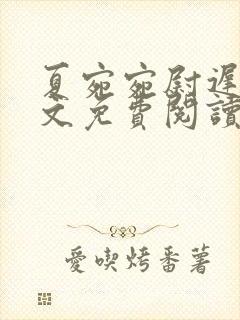 夏宛宛尉遲
文免費閱讀
愛喫烤番薯